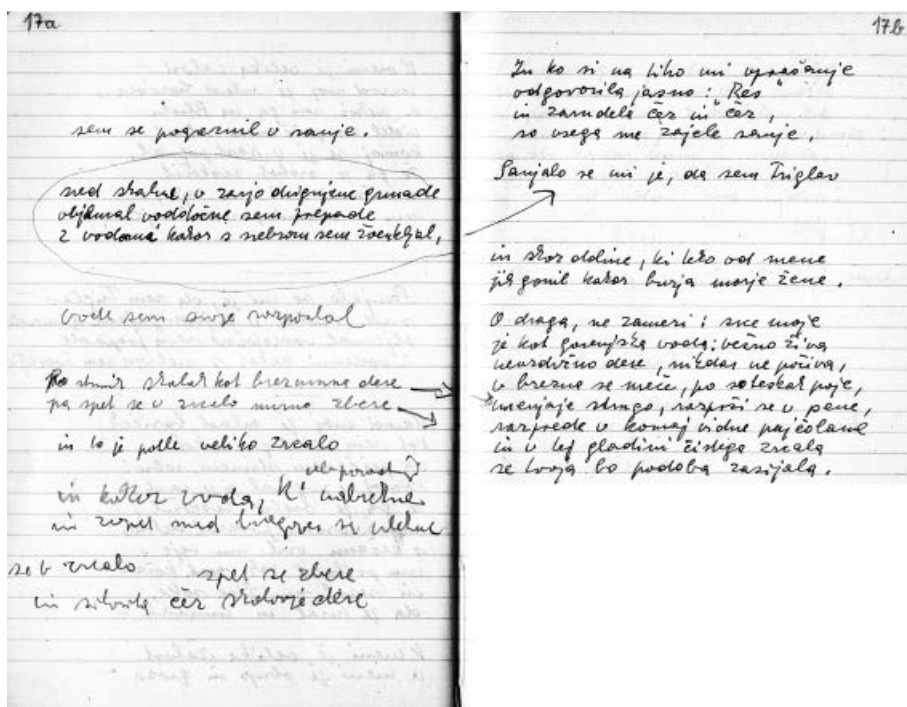 17a
sem se pogreznil v sanje.
sred skalne, v zarjo dvignjene grmade
objemal vodotočne sem prepade
z vodami kakor s srebrom sem žvenkljal,
vode sem svoje razpošiljal
Po strmih skalah kot brezumna dere
pa spet se v zrcalo mirno zbere
in to je potlej veliko zrcalo
in kakor voda, k' nabrekne
in zopet med bregove se
se v zrcalo spet se zbere
in silovita čez skalovje dere
17b
In ko si na tiho mi vprašanje
odgovorila jasno: "Res"
in zarudela čez in čez,
so vsega me zajele sanje.
Sanjalo se mi je, da sem Triglav
in skoz doline, ki tko od mene
jih gonil kakor burja morje žene.
O draga, ne zameri: srce moje
je kot gorenjska voda: večno živa
neurdržno dere, nikdar ne počiva,
v brezna se meče, po soteskah poje,
menjaje strugo, razprši se v pene,
razprede v komaj vidne pajčolane
in v tej gladini čistega zrcala
se tvoja bo podoba zasijala.